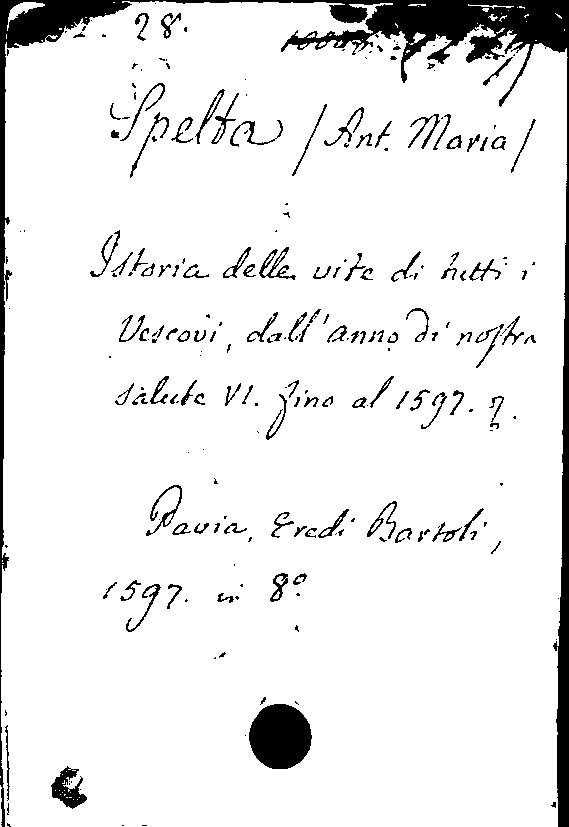 28.
Spelta /Ant. Maria/
Istoria delle vite di tutti i
Vescovi, dall'anno di nostra
salute VI. fino al 1597.
Pavia, Eredi Bartoli,
1597. in 8º